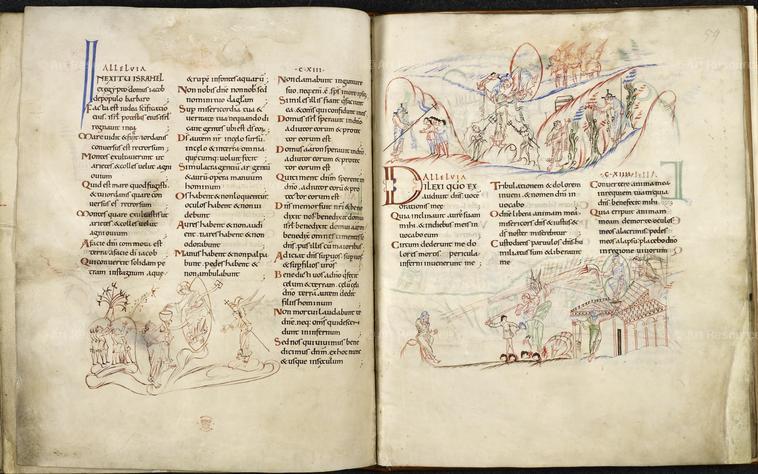 ALLELVIA
INEXITU ISRAHEL
exęgypto domus iacob
depopulo barbaro
Facta est iudea
regnauit
Mare uidit
conuersus est retrorsum
Montes exultauerunt ut
arietes & colles uelut agni
ouium
Quid est mare quod fugisti
& tu iordanis quare con
uersus es retrorsum
Montes quare exultastis sic
arietes & colles uelut agni
ouium
A facie dni commota est
terra afacie di iacob
Qui conuertit solidam pe
tram instagnum aque
& rupe infontes aquarū
Non nobis dne non nob sed
nomini tuo da glam
Sup misericordia tua &
ueritate tua nequando di
cant gentes ubi est ds eoȝ
Ds autem nr incelo sursū
incelo & interra omnia
quecumq; uoluit fecit
Simulacra gentiū argentū
& aurū opera manuum
hominum
Os habent & non loquentur
oculos habent & non ui
debunt
Aures habent & non audi
ent nares habent & non
odorabunt
Manus habent & non palpa
bunt pedes habent &
non ambulabunt
·C·XIII·
Non clamabunt ingutture
suo
Similes illis fiant
Domus
adiutor eorum & prote
ctor eorum est
Domus aaron sperauit indno
adiutor eorum & prote
ctor eorum est
Qui timent dnm sperent in
dno adiutor eorū & pro
tector eorum est
Dns memor fuit nri & bene
dixit nob benedixit domui
isrl benedixit domui aaron
benedixit omnibus
dnm pusillis cū maioribus
Adiciat dns sup uos sup uos
& sup filios uros
Benedicti uos adno qui fecit
celum & terram celū celi
dno terrā autem dedit
filiis hominum
Non mortui laudabunt te
dne neq; oms qui descen
dunt ininfernum
Sed nos qui uiuimus bene
dicimus dnm exhoc nunc
& usque insęculum
59
ALLELVIA
DILEXI QUO EX
audiuit dns uoce
orationis mee
Quia inclinauit aurē suam
mihi & indiebus meis in
uocabo eum
Circum dederunt me do
lores mortis pericula
inferni inuenerunt me
Tribulationem & dolorem
inueni & nomen dni in
uocabo
O dne libera animam meā
misericors dns & iustus &
ds noster miseretur
Custodiens paruulos dns hu
miliatus sum & liberauit
me
Conuertere anima mea
inrequiem tuam quia
dns benefecit mihi
Quia eripuit animam
meam demorte oculos
meos alacrimis pedes
meos alapsu placebo dno
inregione uiuorum